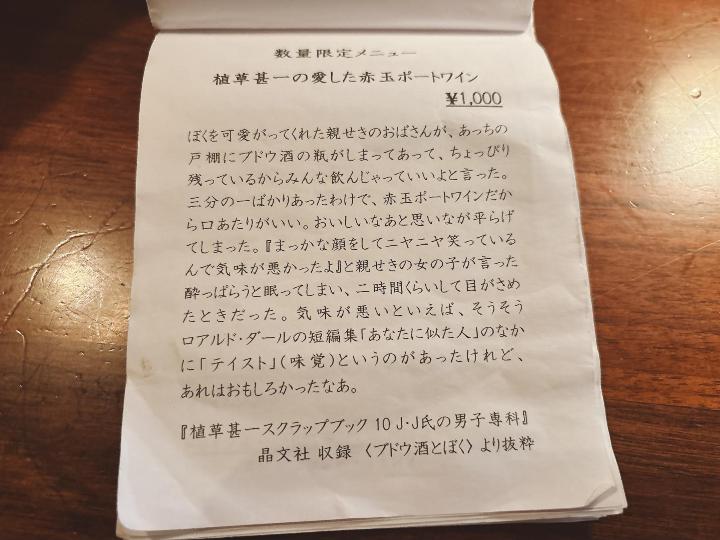 数量限定メニュー
植草甚一の愛した赤玉ポートワイン
¥1,000
ぼくを可愛がってくれた親せきのおばさんが、あっちの
戸棚にブドウ酒の瓶がしまってあって、ちょっぴり
残っているからみんな飲んじゃっていいよと言った。
三分の一ばかりあったわけで、赤玉ポートワインだか
ら口あたりがいい。おいしいなあと思いなが平らげ
てしまった。『まっかな顔をしてニヤニヤ笑っている
んで気味が悪かったよ』と親せきの女の子が言った
酔っぱらうと眠ってしまい、二時間くらいして目がさめ
たときだった。気味が悪いといえば、そうそう
ロアルド・ダールの短編集「あなたに似た人」のなか
に「テイスト」(味覚)というのがあったけれど、
あれはおもしろかったなあ。
『植草甚一スクラップブック 10 J・J氏の男子専科』
晶文社 収録 〈ブドウ酒とぼく〉 より抜粋